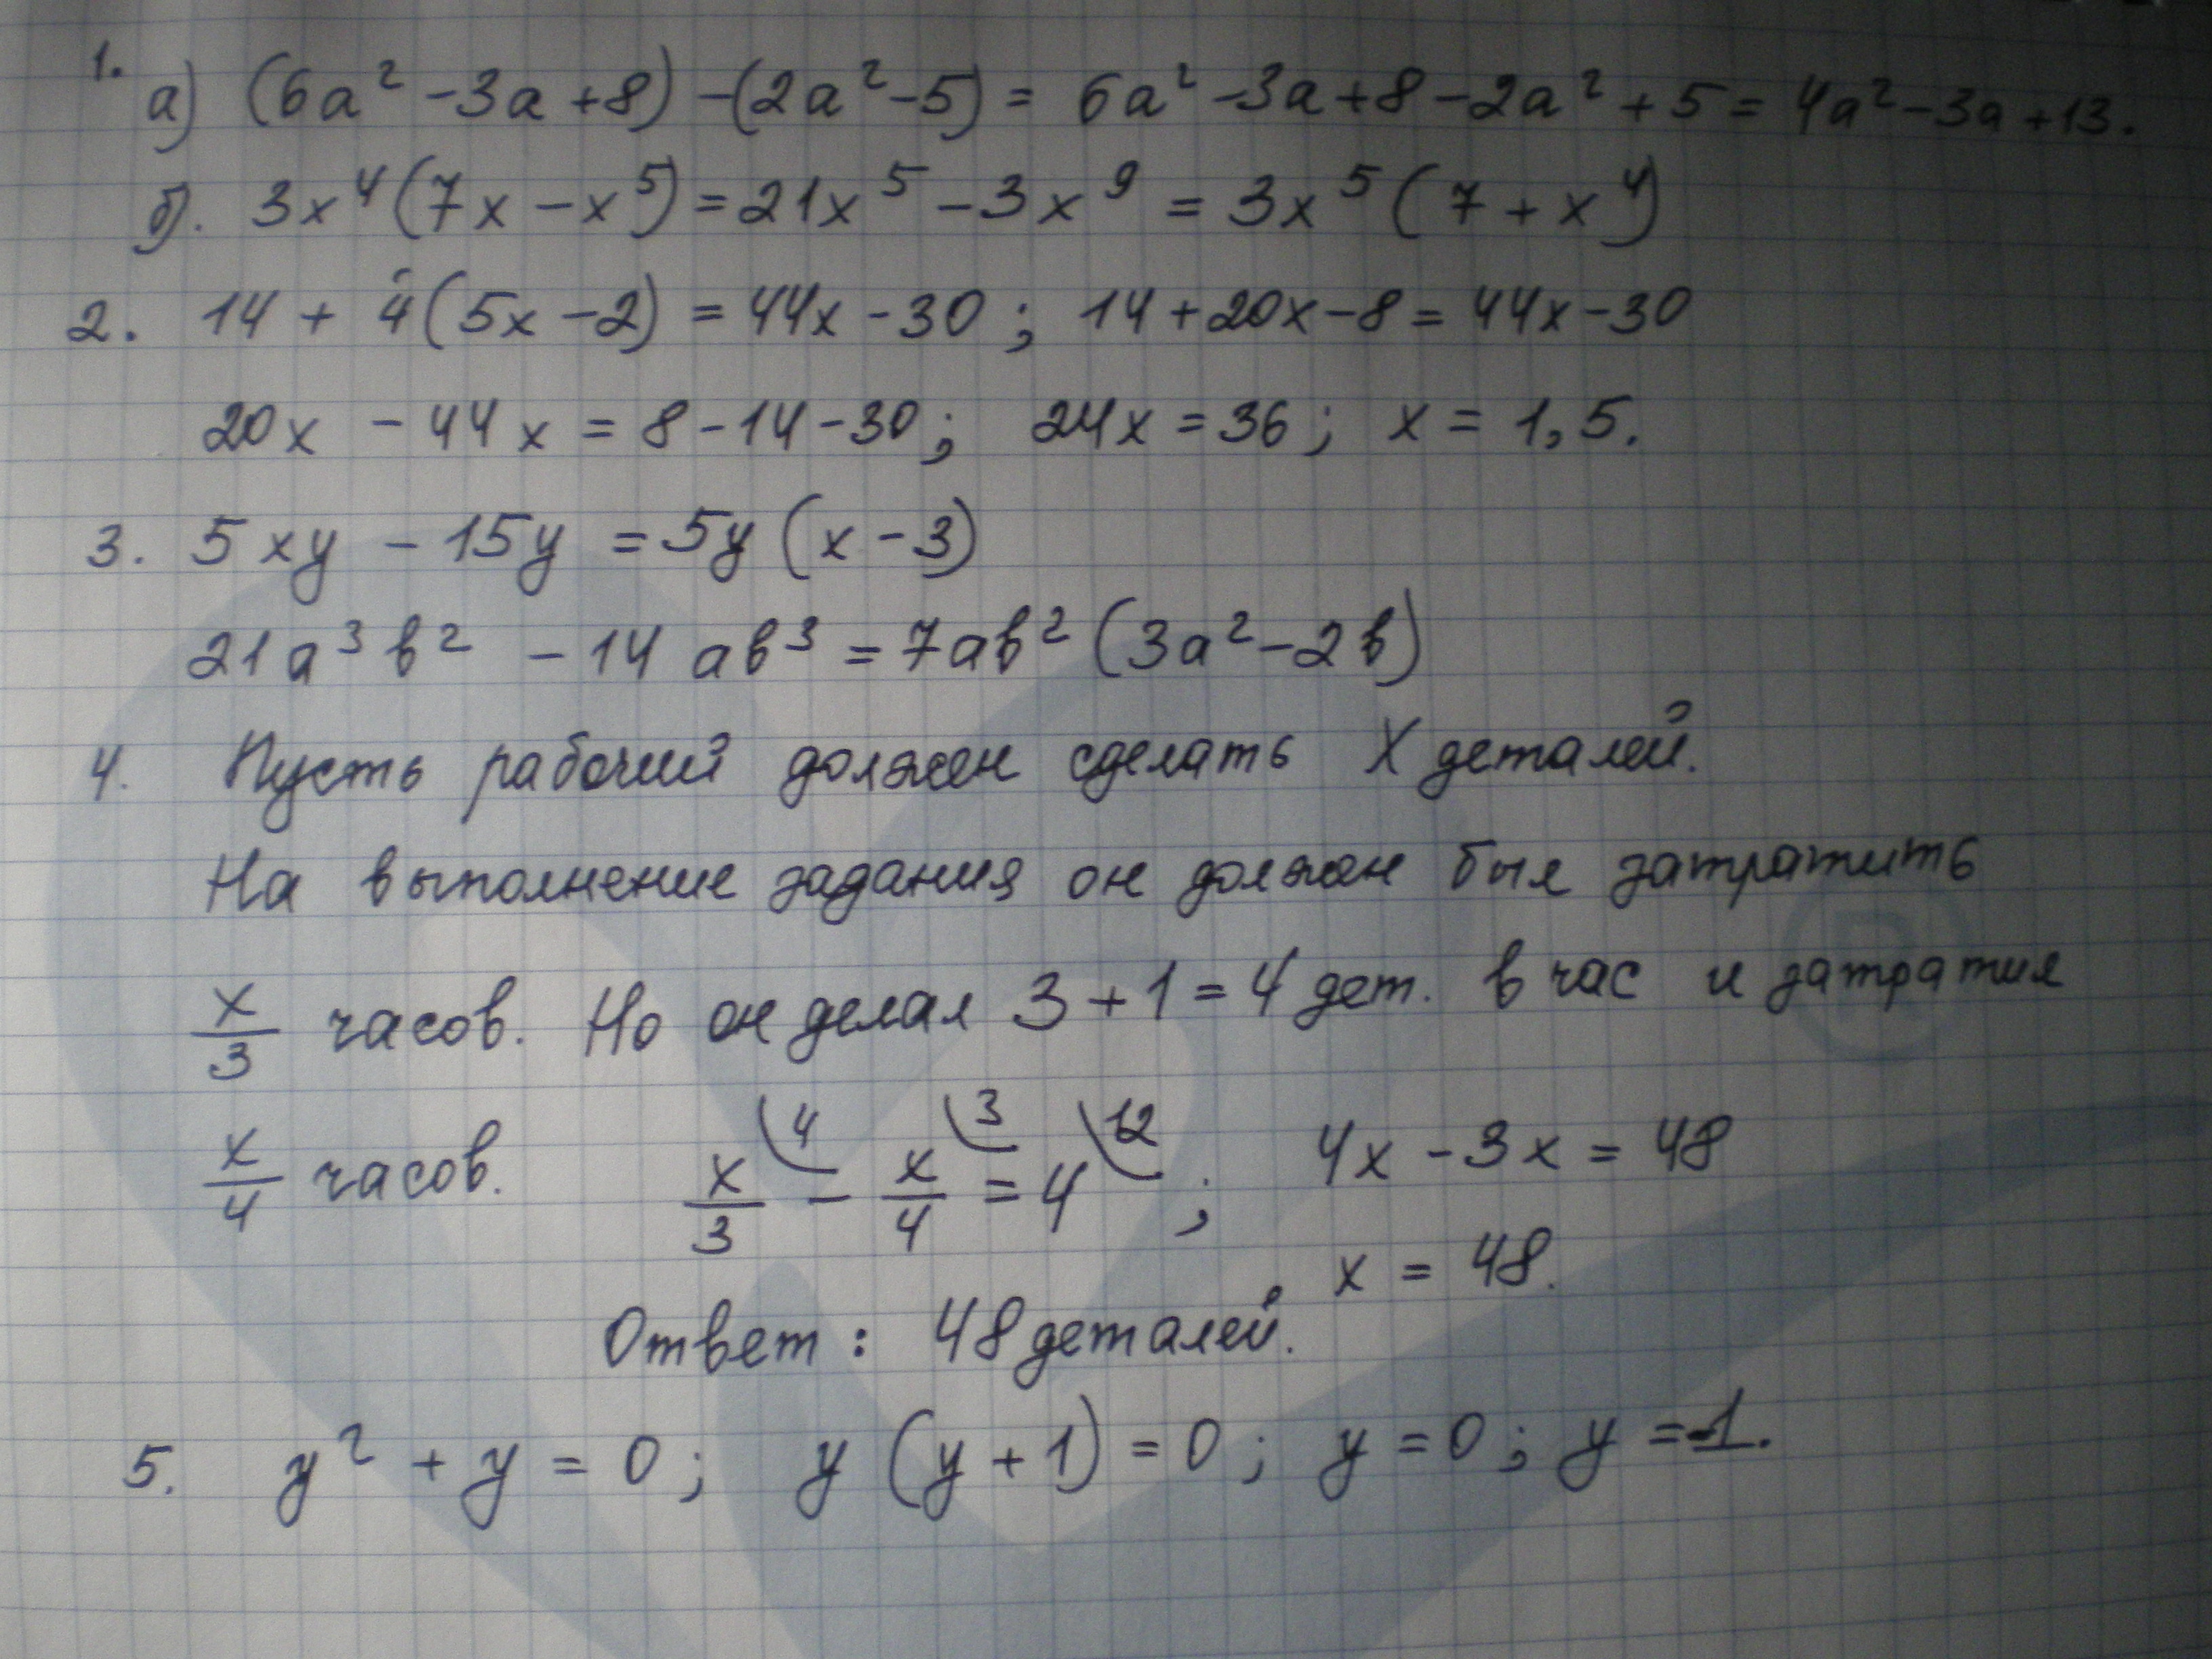 1. а) (6a² - 3a + 8) - (2a² - 5) = 6a² - 3a + 8 - 2a² + 5 = 4a² - 3a + 13.
б). 3x⁴(7x - x⁵) = 21x⁵ - 3x⁹ = 3x⁵(7 + x⁴)
2. 14 + 4(5x - 2) = 44x - 30; 14 + 20x - 8 = 44x - 30
20x - 44x = 8 - 14 - 30; 24x = 36; x = 1,5.
3. 5xy - 15y = 5y(x - 3)
21a³b² - 14ab³ = 7ab²(3a² - 2b)
4. Пусть рабочий должен сделать X деталей.
На выполнение задания он должен был затратить
x/3 часов. Но он делал 3 + 1 = 4 дет. в час и затратил
x/4 часов. x/3 ⁴ - x/4 ³ = 4 ¹²; 4x - 3x = 48
x = 48.
Ответ: 48 деталей.
5. y² + y = 0; y(y + 1) = 0; y = 0; y = -1.